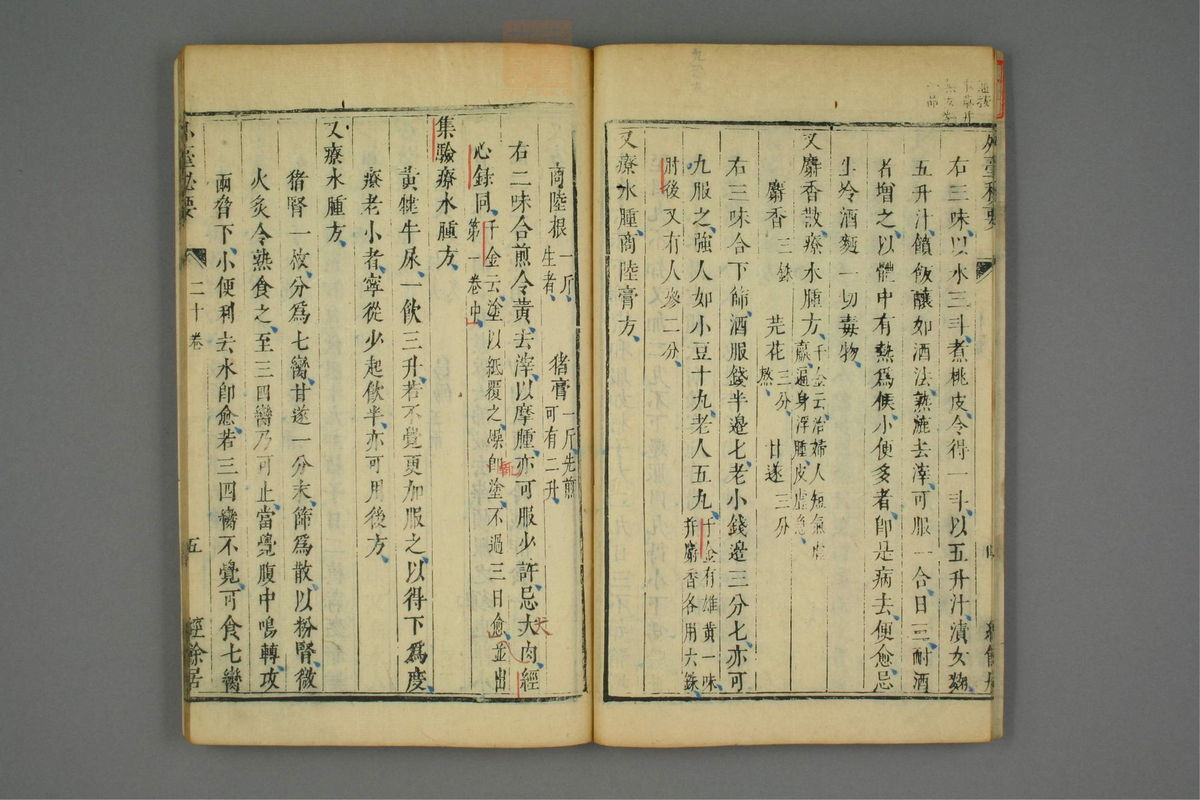 外臺秘要
右三味以水三斗煮桃皮令得一斗以五升汁漬女麴
五升汁饙飯釀如酒法熟漉去滓可服一合日三耐酒
者增之以體中有熱爲候小便多者即是病去便愈忌
生冷酒麵一切毒物
又麝香散療水腫方千金云治婦人短氣虛
羸遍身浮腫皮虛急
麝香三銖 芫花三分熬 甘遂三分
右三味合下篩酒服錢半邊匕老小錢邊三分匕亦可
丸服之強人如小豆十丸老人五丸千金有雄黃一味
并麝香各用六銖
肘後又有人參二分
又療水腫商陸膏方
商陸根一斤生者 猪膏一斤先煎可有二升
右二味合煎令黃去滓以摩腫亦可服少許忌犬肉經
心錄同千金云塗以紙覆之燥即塗不過三日愈並出
第一卷中
集驗療水腫方
黃犍牛尿一飲三升若不覺更加服之以得下爲度
療老小者寧從少起飲半亦可用後方
又療水腫方
猪腎一枚分爲七臠甘遂一分末篩爲散以粉腎微
火炙令熟食之至三四臠乃可止當覺腹中鳴轉攻
兩脅下小便利去水即愈若三四臠不覺可食七臠
外臺秘要
二十卷
五
經餘居